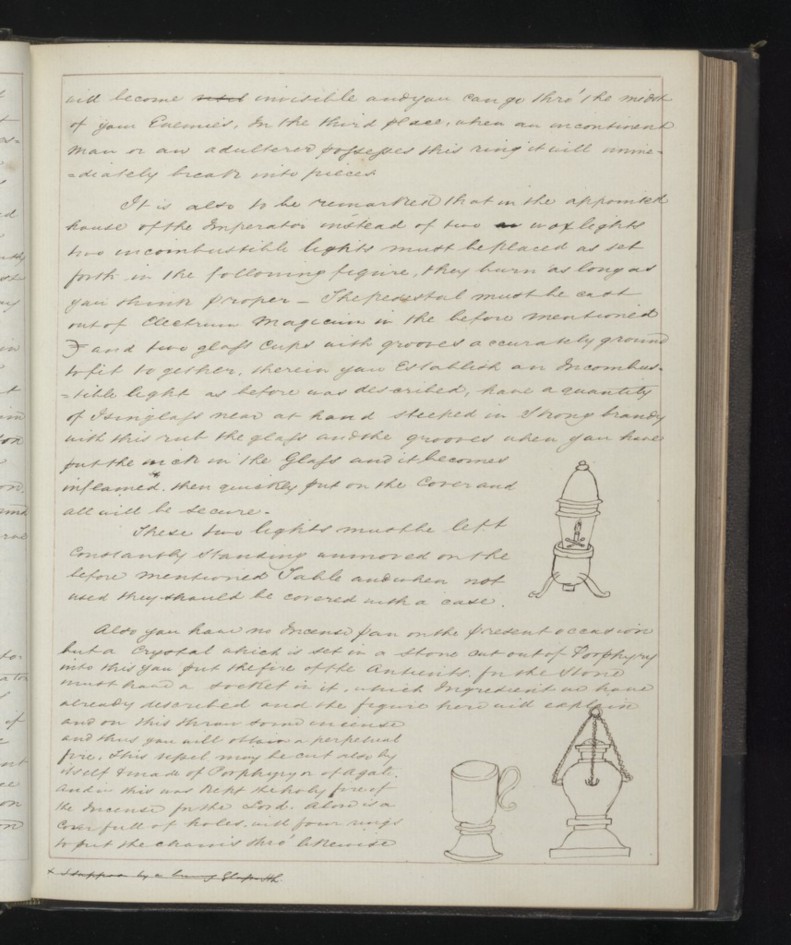 will become invisible and you can go thro' the midst
of your Enemies. In the third place, when an incontinent
man or an adulterer possesses this ring it will imme-
=diately break into pieces
It is also to be remarked that in the appointed
house of the Imperator instead of two wax lights
two incombustible lights must be placed as set
forth in the following figure, they burn as long as
you think proper – The Pedestal must be cast
out of Electrum Magicum in the before mentioned
and two glass Cups with grooves accurately ground
to fit together, therein you Establish an Incombus-
=tible light as before was described, have a quantity
of Isinglass near at hand steeped in Strong brandy
with this rub the glass and the grooves when you have
put the wick in the Glass and it becomes
inflamed. then quickly put on the Cover and
all will be secure.
These two lights must be left
Constantly Standing unmoved on the
before mentioned Table and when not
used they should be covered with a case.
Also you have no Incense pan on the present occasion
but a Crystal which is set in a Stone cut out of Porphyry
into this you put the fire of the Antients. In the Stone
must have a socket in it, which Ingredient we have
already described and the figure here will explain
and on this throw some incense
and thus you will obtain a perpetual
fire. This vessel may be cut also by
itself & made of Porphyry or of Agate.
And in this was kept the holy fire of
the Incense for the Lord. Above is a
Cover full of holes, with four rings
to put the chains thro' likewise